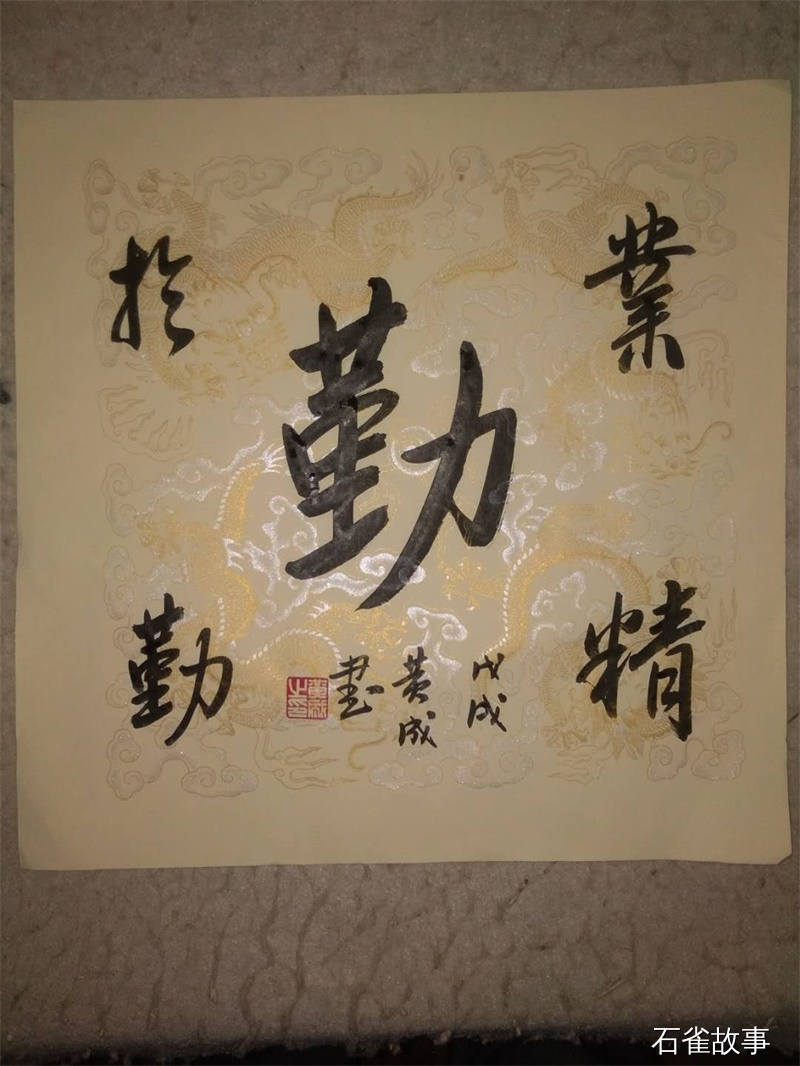 業精
於勤
勤
戊戌
黄成
書
石雀故事